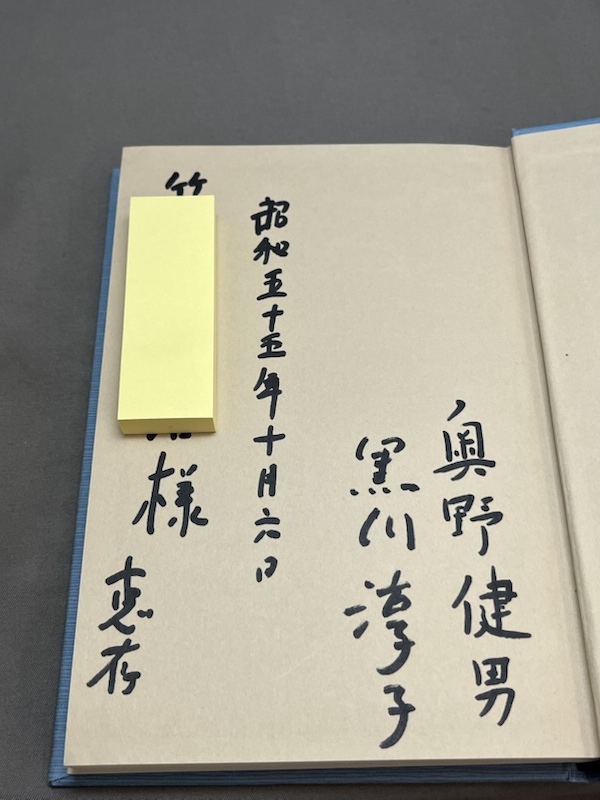 奥野健男
黒川淳子
昭和五十五年十月六日
竹
様
恵存